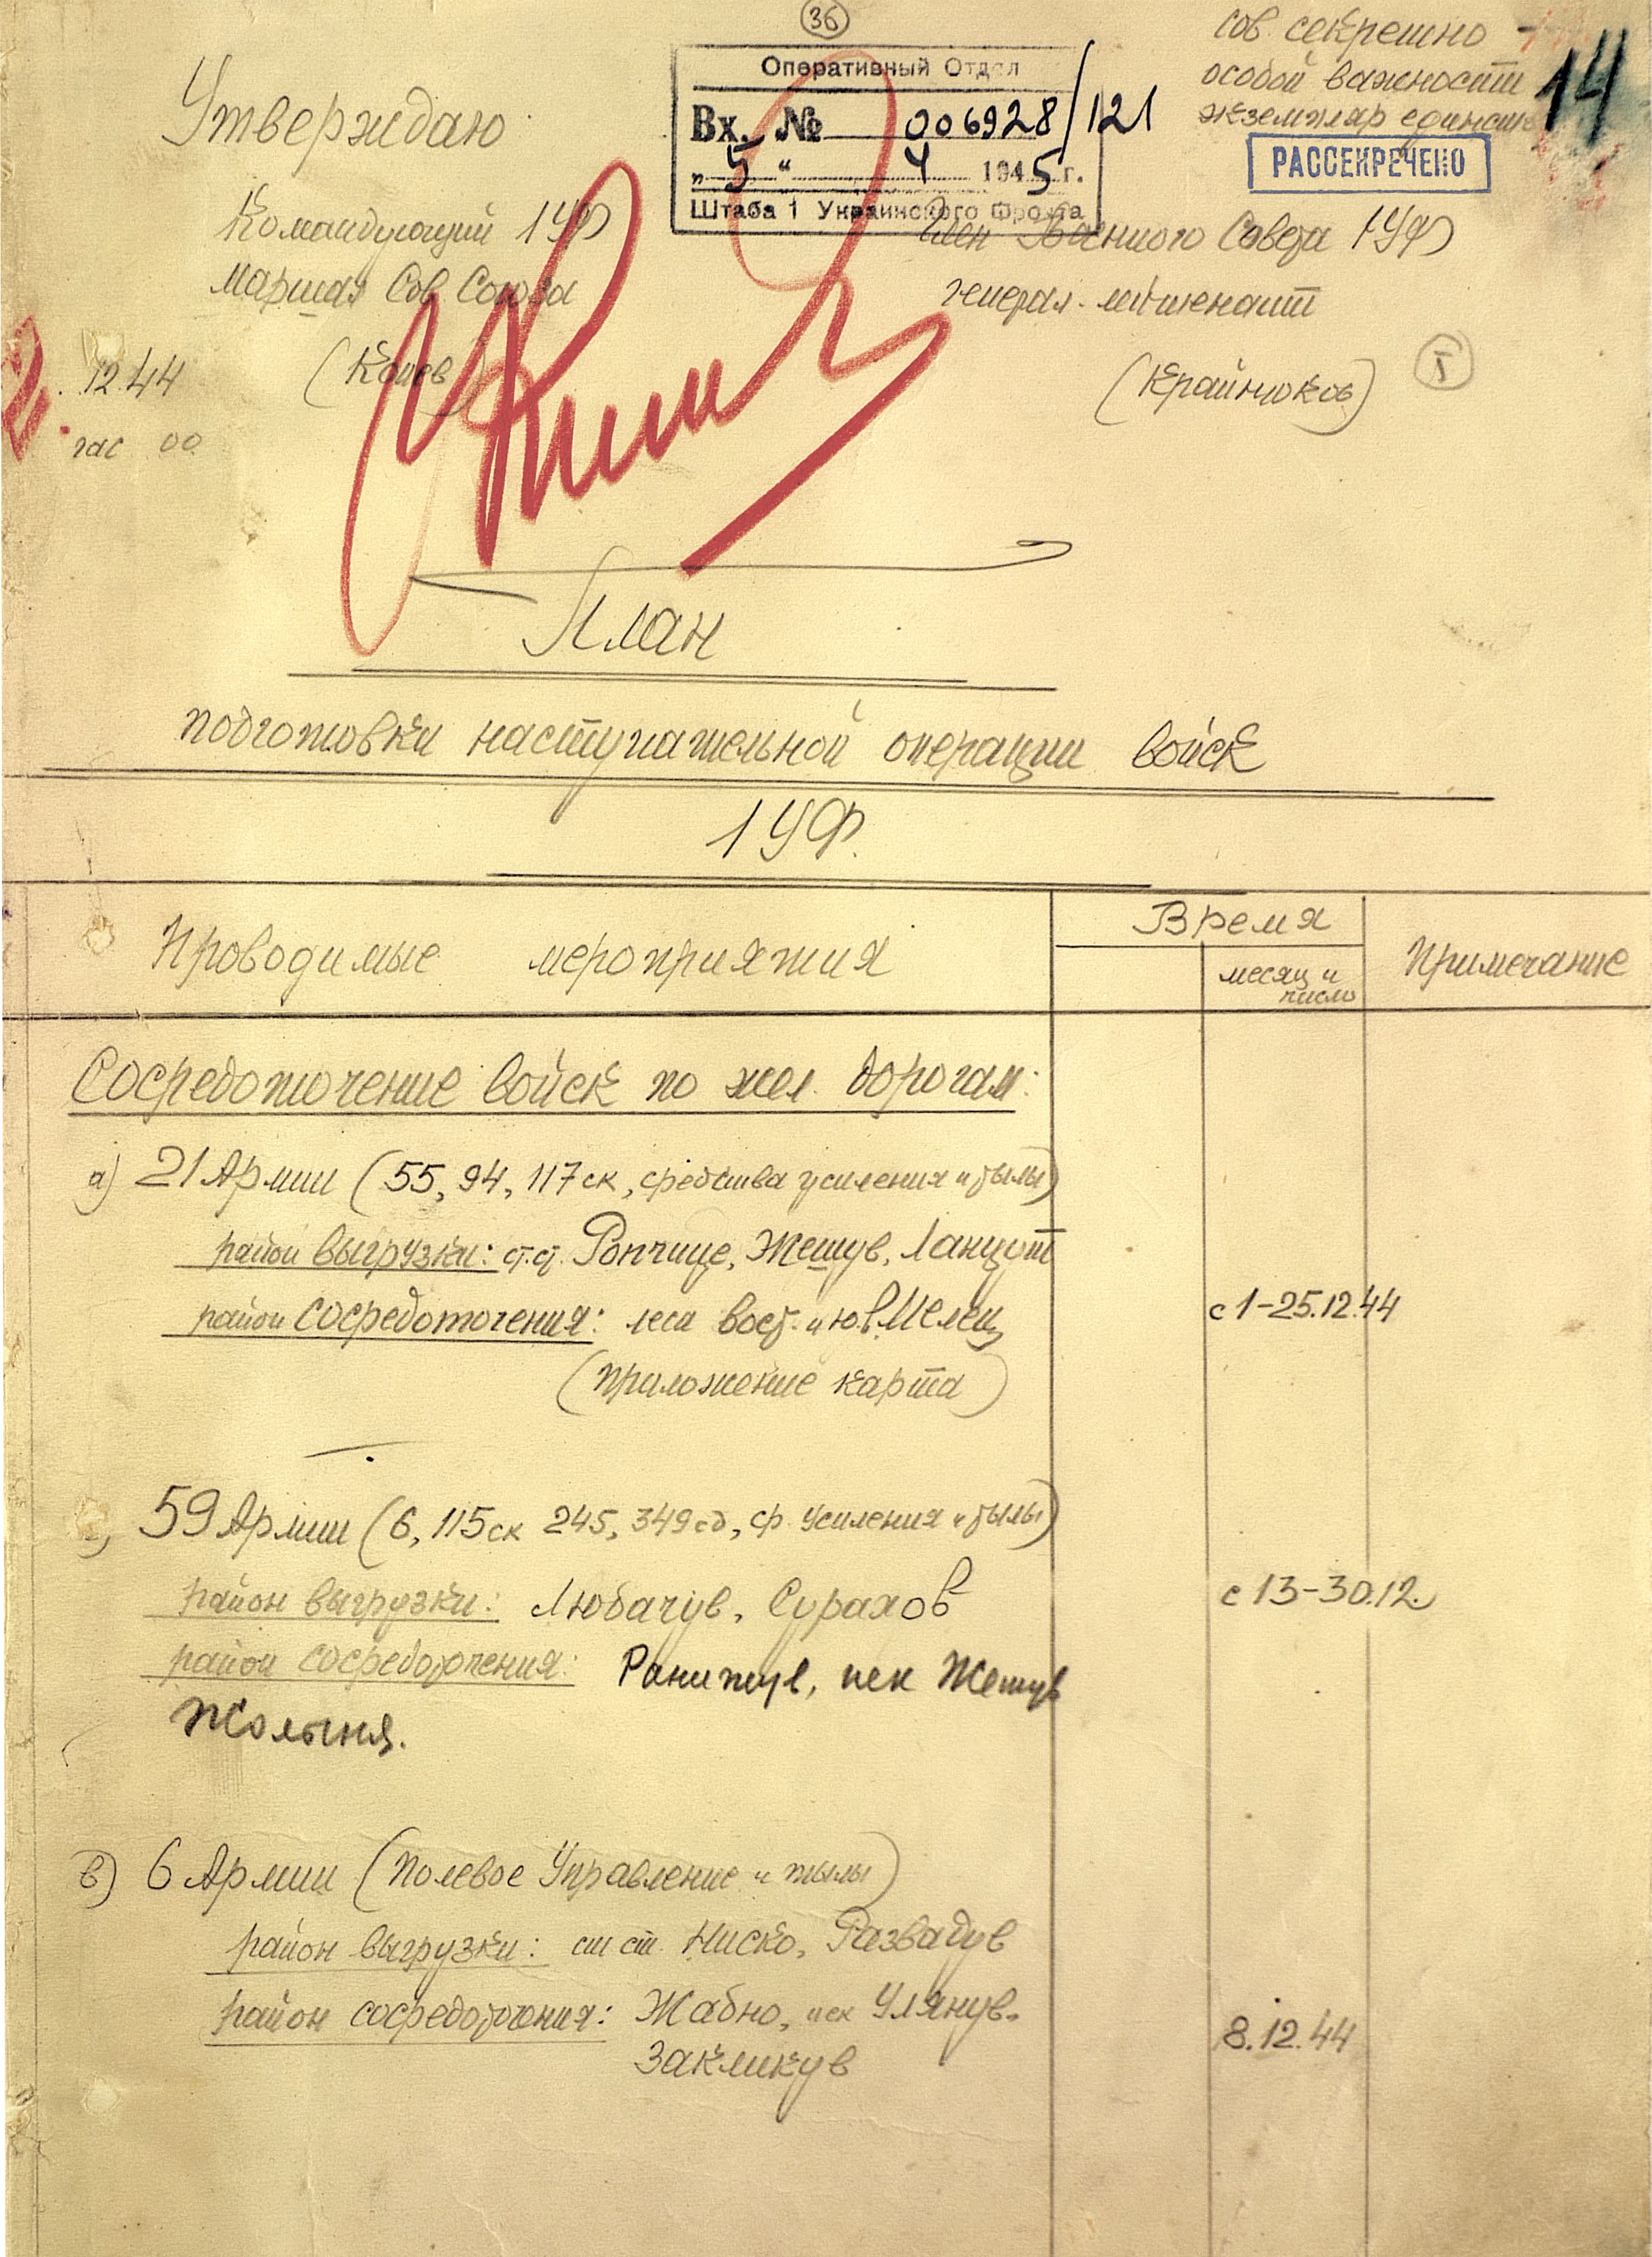 36
сов. секретно
особой важности
экземпляр единств
14
Оперативный Отдел
Вх. № 006928/121
„5“ 4 1945 г.
Штаба 1 Украинского Фронта
РАССЕКРЕЧЕНО
Утверждаю
Командующий 1УФ
Маршал Сов Союза
(Конев)
Член Военного Совета 1УФ
генерал-лейтенант
(Крайнюков)
5
. 12.44
час 00
План
подготовки наступательной операции войск
1 УФ.
Проводимые мероприятия
Время
месяц и
число
Примечание
Сосредоточение войск по жел. дорогам:
а) 21 Армии (55, 94, 117 ск, средства усиления и тылы)
район выгрузки: ст.ст. Ропчице, Жешув, Ланцут
район сосредоточения: леса вост. и ю.в. Мелец
с 1-25.12.44
(приложение карта)
59 Армии (6, 115 ск 245, 349 сд, ср. усиления и тылы)
район выгрузки: Любачув, Сурахов
с 13-30.12.
район сосредоточения: Ранижув, иск Жешув
Жолыня.
в) 6 Армии (Полевое Управление и тылы)
район выгрузки: ст ст. Ниско, Развадув
район сосредоточения: Жабно, иск Улянув.
8.12.44
Закликув